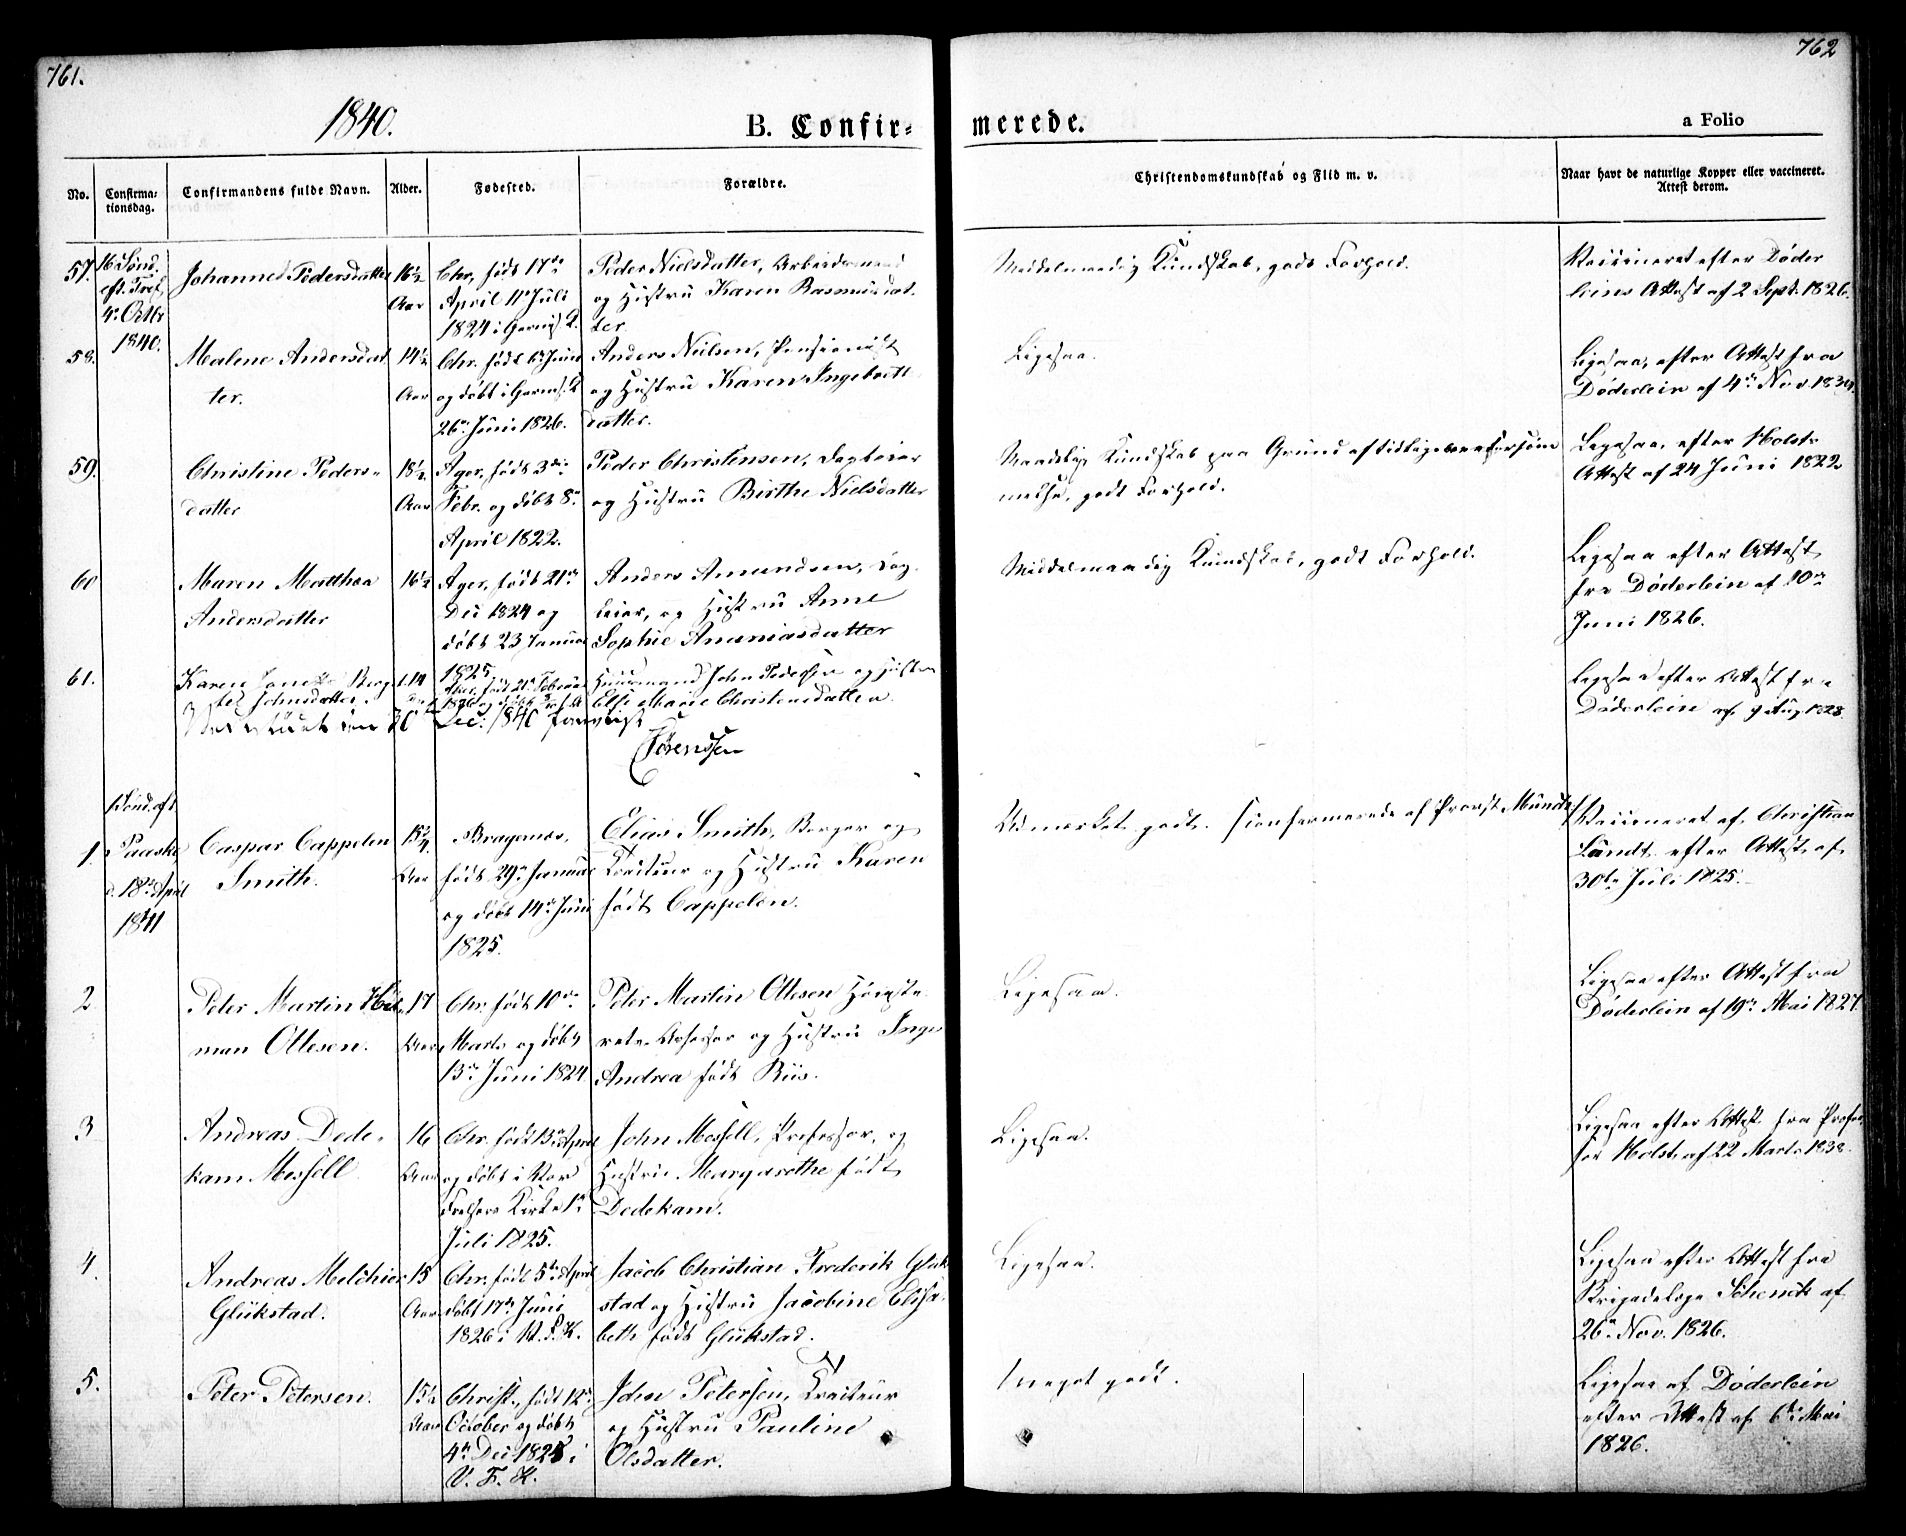 761.
762
1840.
B. Confir-
merede.
a Folio
No.
Confirma-
tionsdag.
Confirmandens fulde Navn.
Alder.
Fødested.
Forældre.
Christendomskundskab og Flid m. v.
Naar havt de naturlige Kopper eller vaccineret.
Attest derom.
57.
16 Sønd.
eft. Tref.
4. Octbr
1840.
Johanne Pedersdatter
16½
Aar
Chr, født 17de
April 11 Juli
1824 i Garnis. K.
Peder Nielsdatter, Arbeidsmand
og Hustru Karen Rasmusdat-
ter.
Middelmaadig Kundskab, godt Forhold.
Vaccineret efter Døder
leins Attest af 2 Sept. 1826.
58.
Malene Andersdat
ter.
14½
Aar
Chr. født 6 Juni
og døbt i Garnis. K
26de Juni 1826.
Anders Nielsen, Pensionist
og Hustru Karen Ingebrett
datter.
Ligesaa.
Ligesaa, efter Attest fra
Døderlein af 4de Nov. 183
59.
Christine Peders-
datter
18½
Aar
Ager, født 3die
Febr. og døbt 8de
April 1822.
Peder Christensen, Dagleier
og Hustru Birthe Nielsdatter
Maadelig Kundskab paa Grund af tidligere Forsøm
melse, godt Forhold.
Ligesaa, efter Holsts
Attest af 24 Juni 1822
60
Maren Matthea
Andersdatter
16½
Ager, født 21de
Dec 1824 og
døbt 23 Januar
1825
Anders Amundsen, Dag-
leier, og Hustru Anne
Sophie Ananiasdatter
Middelmaadig Kundskab, godt Forhold.
Ligesaa efter Attest
fra Døderlein af 10de
Juni 1826.
61.
Karen
Johnsdatter.
14
født 21de Februar
1826 og døbt
Huusmand John Pedersen og Hustru
Else Marie Christensdatter.
Ligesaa efter Attest fra
Døderlein af 9 Aug. 1828
den 30te Dec: 1840
Sørenssen
1 Sønd. eft
Paaske
d. 18de April
1841
1.
Caspar Cappelen
Smith.
15¼
Aar
Bragernæs,
født 29de Januar
og døbt 14de Juni
1825.
Elias Smith, Borger og
Traiteur og Hustru Karen
født Cappelen.
Udmærket godt. Confirmerede af Provst Munch
Vaccineret af Christian
Lundt efter Attest af
30te Juli 1825.
2
Peter Martin
man Ottesen.
17
Aar
Chr. født 10de
Marts og døbt
13de Juni 1824
Peter Martin Ottesen Høieste-
rets Assessor og Hustru Inge
Andrea født Riis.
Ligesaa.
Ligesaa efter Attest fra
Døderlein af 19de Mai 1827.
3
Andreas Dede-
kam Messell
16
Aar
Chr. født 13de April
og døbt i Vor
Frelsers Kirke 1ste
Juli 1825.
John Messell, Professor, og
Hustru Margarethe født
Dedekam.
Ligesaa.
Ligesaa efter Attest fra Profes
sor Holst af 22 Marts 1838.
4.
Andreas Melchior
Glükstad.
15
Aar
Chr. født 5te April
døbt 17de Juni
1826 i V. F. K.
Jacob Christian Frederik Glük
stad og Hustru Jacobine Elisa-
beth født Glükstad.
Ligesaa.
Ligesaa efter Attest fra
Brigadelæge Schenck af
26de Nov. 1826.
5.
Peter Petersen.
15½
Aar
Christ., født 12te
October og døbt
4de Dec 1825 i
V. F. K.
John Petersen, Traiteur
og Hustru Pauline
Olsdatter.
meget godt.
Ligesaa af Døderlein
efter Attest af 6te Mai
1826.